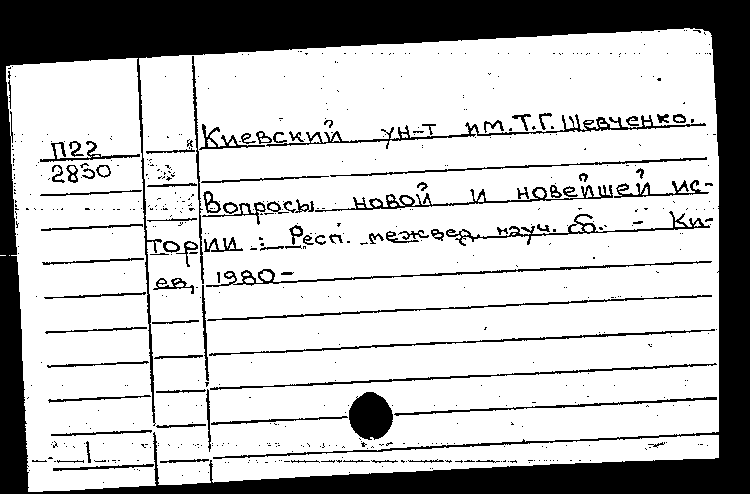 П22
2850
Киевский ун-т им. Т.Г. Шевченко.
Вопросы новой и новейшей ис-
тории : Респ. межвед. науч. сб. - Ки-
ев, 1980-
1